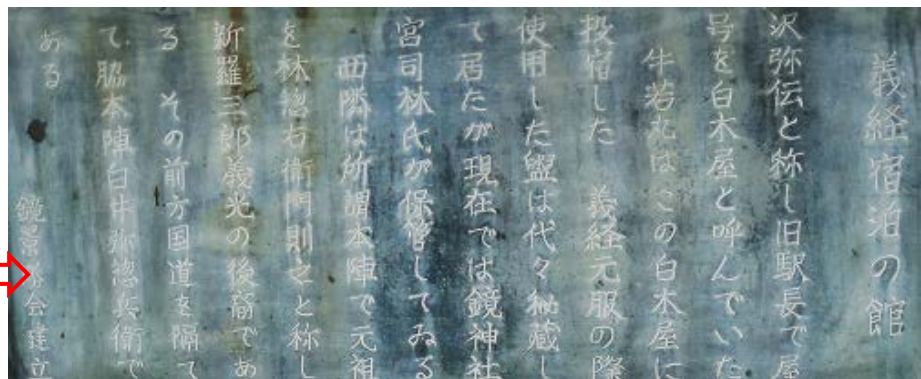 義経宿泊の館
沢弥伝と称し旧駅長で屋
号を白木屋と呼んでいた
牛若丸はこの白木屋に
投宿した 義経元服の際
使用した盥は代々秘蔵し
て居たが現在では鏡神社
宮司林氏が保管してゐる
西隣は所謂本陣で元祖
を林惣右衛門則之と称し
新羅三郎義光の後裔であ
る その前方国道を隔て
て脇本陣白井弥惣兵衛で
ある
鏡景 会建立